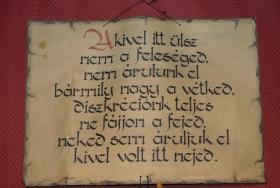 Akivel itt ülsz
nem a feleséged,
nem árulunk el
bármily nagy a vétked.
Diszkréciónk teljes
ne fájjon a fejed,
neked sem áruljuk el
kivel volt itt nejed.